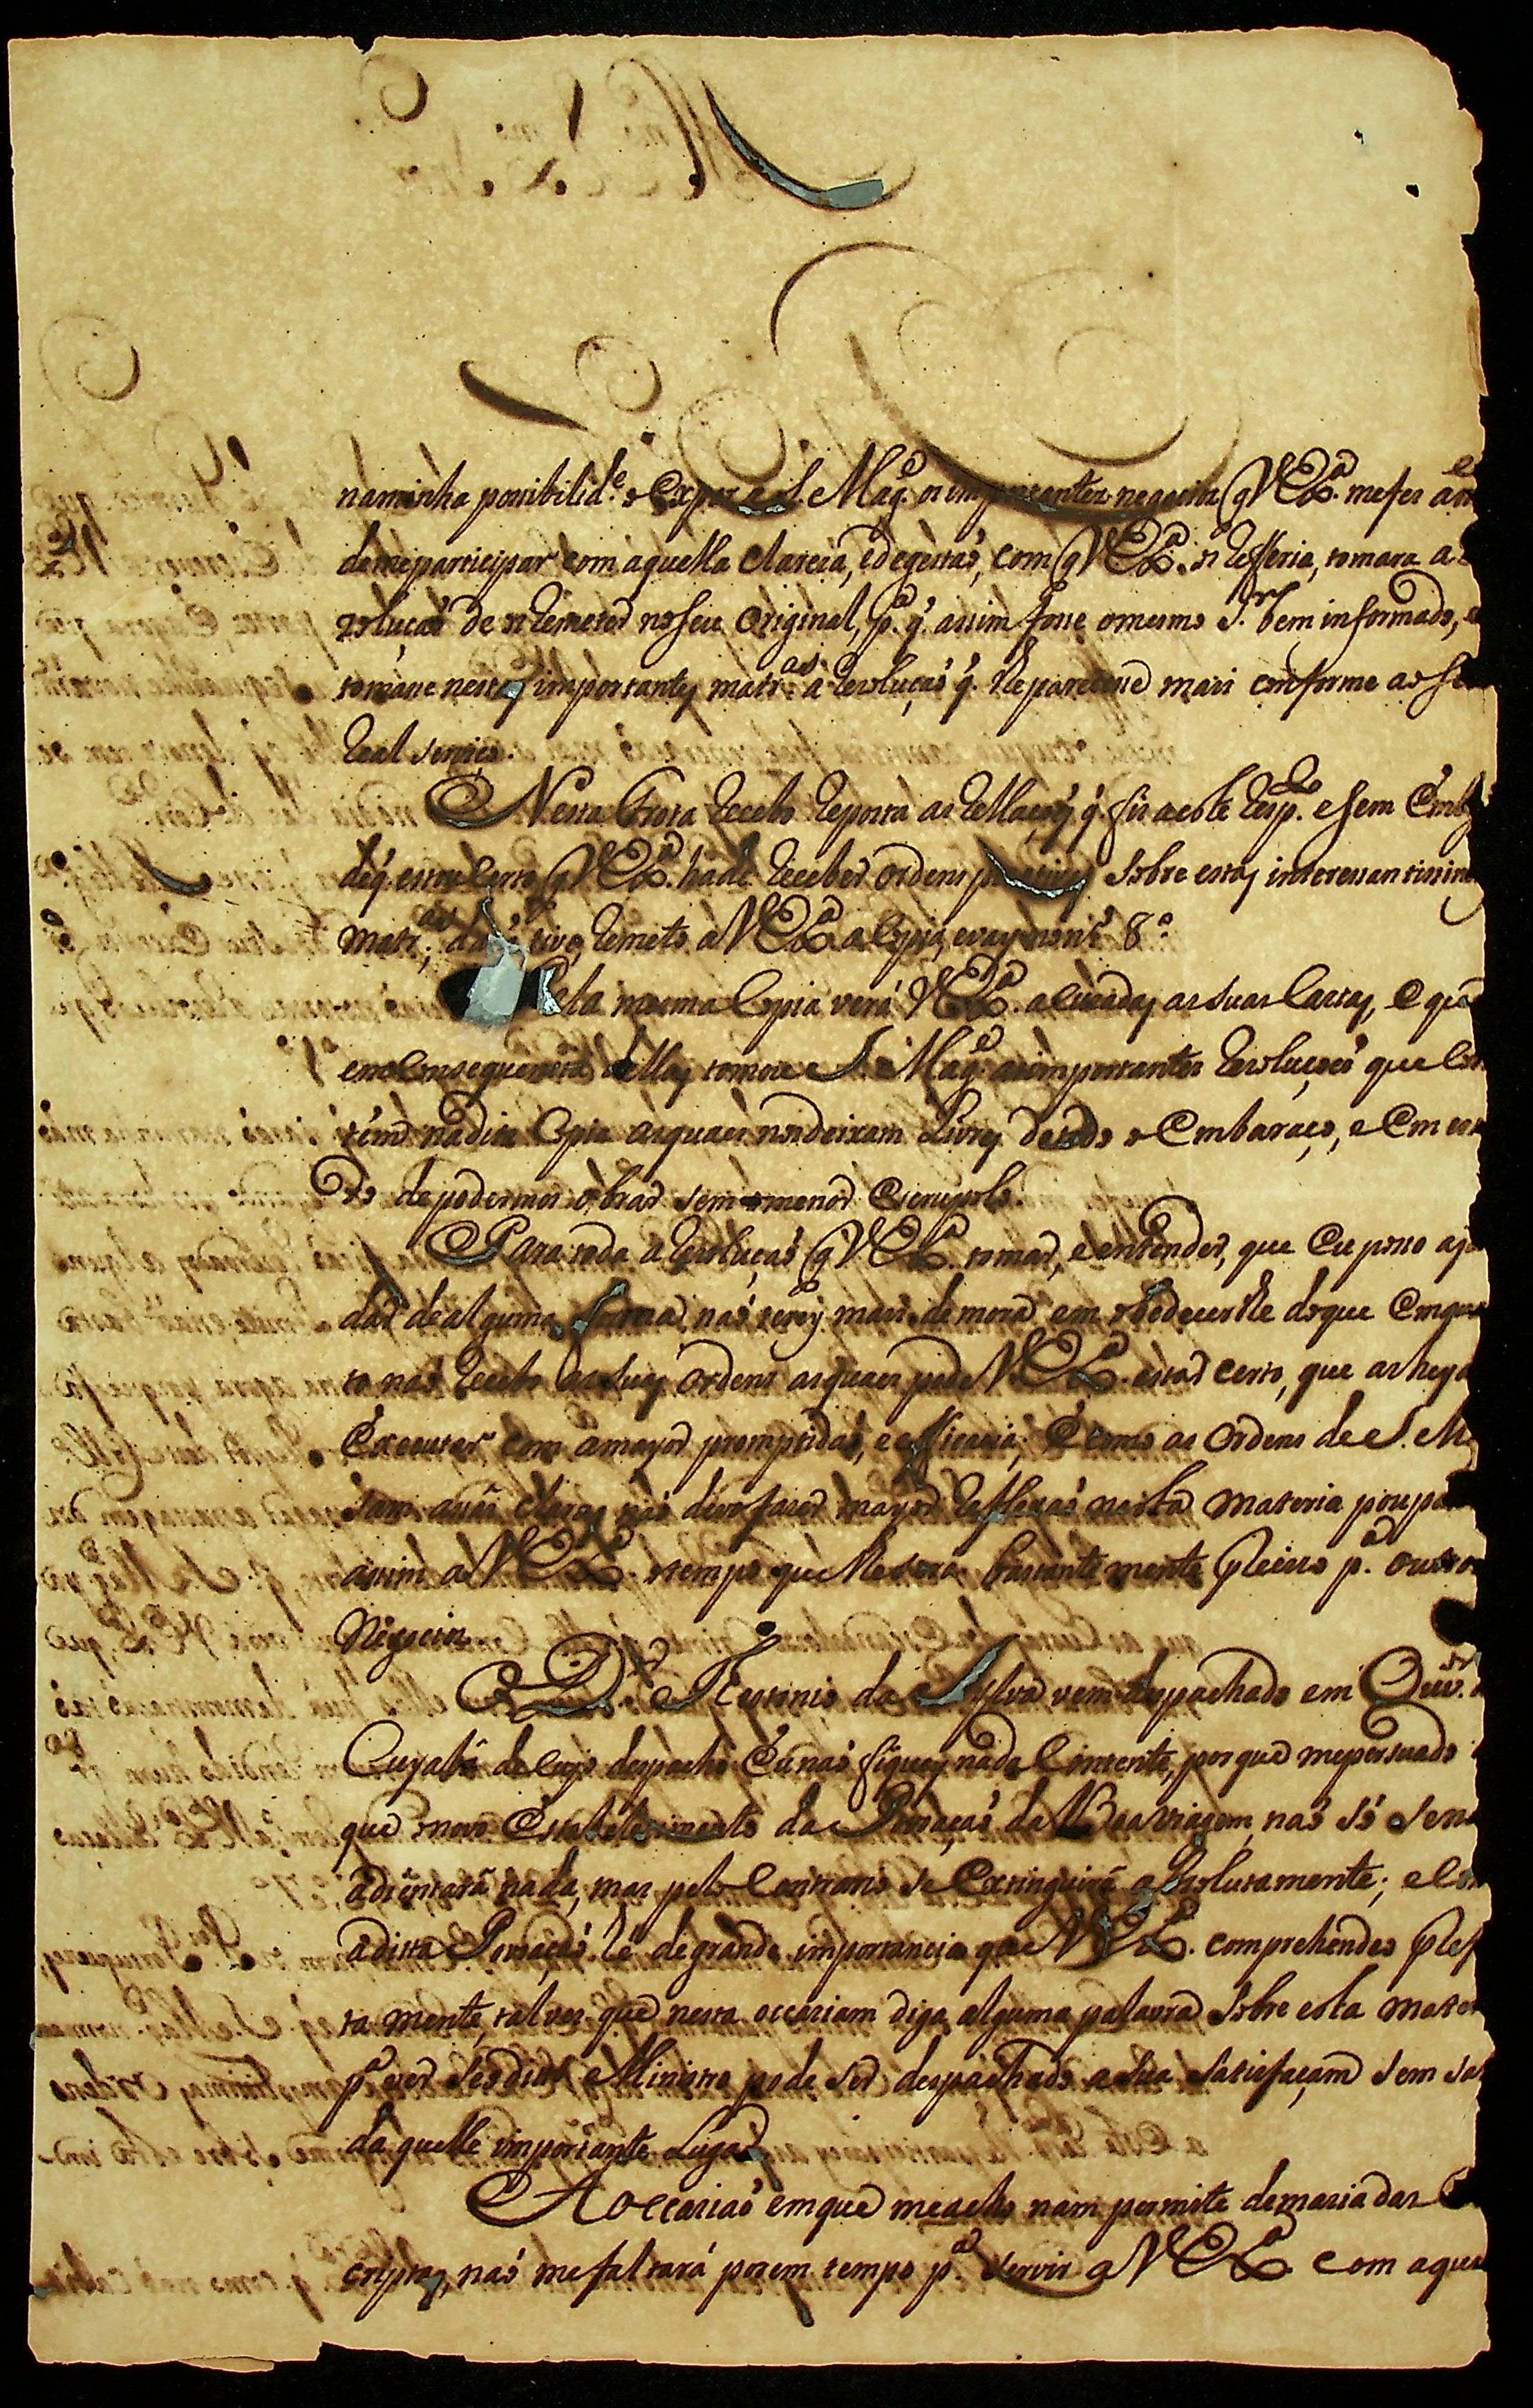 na minha possibilid.e o Expor a S. Mag.e os importantes negocios q V Ex.a me fez a
de me participar com aquella clareza, e dezejaó, com q V Ex.a os refferia, tomara a
zoluçaó de os remeter no seu Original, p.a q. assim fosse o mesmo S.r bem informado, e
tomase nestas importantes matr.as a rezoluçaó q. lhe parecese mais conforme ao seu
Real serviço.
Nesta Frota recebo reposta as rellaçoẽs q. fiz a este resp.to e sem Emb
de q. estou certo q V Ex.a hade receber Ordens sobre estas interessantissimas
matr.as da q tive, remeto a V Ex.a a Copia, e vay no n.o 8.o
Pela mesma Copia verá V Ex.a acuzadas as suas Cartas, e que
em Consequencia dellas tomou S. Mag.e as importantes rezoluçoẽs que Con
tem na dita Copia as quaes nos deixam Livres de todo o Embaraço, e Em es
do de podermos obrar sem o menor Escrupulo.
Para toda a rezoluçaó q V Ex.a tomar, e entender, que Eu posso aju
dar de alguma forma, naó terey mais demora em obedecerlhe do que Emquan
to naó recebo as suas Ordens as quaes pode V Ex.a estar certo, que as hey de
Executar com a mayor promptidaó, e efficacia; E como as Ordens de S. Mag
sam taó claras naó devo fazer mayor reflexaó nesta materia poupan
assim a V Ex.a o tempo que lhe será bastantemente precizo p.a outros
Negocios.
O D.or Theotonio da Sylva vem despachado em Ouv.or
Cuyabá de Cujo despacho Eu naó fiquey nada Contente, porque me persuado
que o novo Estabelecimento da Povoaçaó da Boa viagem, naó só se naó
adientará nada, mas pelo Contrario se Extinguirá absolutamente; e Co
a dita Povoaçaó hé de grande importancia que V Ex.a comprehende
ta mente, talvez que nesta occaziam diga alguma palavra sobre esta mater
p.a ver se o dito Ministro pode ser despachado a sua satisfaçam sem sa
daquelle importante Lugar.
A occaziaó em que me acho nam permite demaziadas
criptas, naó me faltará porem tempo p.a servir a V Ex.a com aque